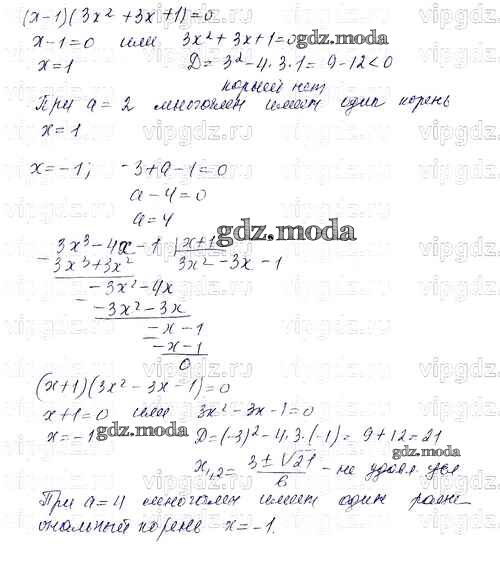 (x-1)(3x² + 3x + 1) = 0
x-1=0 или 3x² + 3x + 1 = 0
x=1 D = 3² - 4·3·1 = 9 - 12 < 0
корней нет
При a = 2 многочлен имеет один корень
x = 1
x = -1; -3 + a - 1 = 0
a - 4 = 0
a = 4
3x³ - 4x - 1 | x+1
3x³ + 3x² 3x² - 3x - 1
-3x² - 4x
-3x² - 3x
-x - 1
-x - 1
0
(x+1)(3x² - 3x - 1) = 0
x+1=0 или 3x² - 3x - 1 = 0
x = -1 D = (-3)² - 4·3·(-1) = 9 + 12 = 21
x₁,₂ = (3 ± √21)/6 - не удовл. усл
При a = 4 многочлен имеет один рацио
ональный корень x = -1.
gdz.moda
gdz.moda
gdz.moda
vipgdz.ru